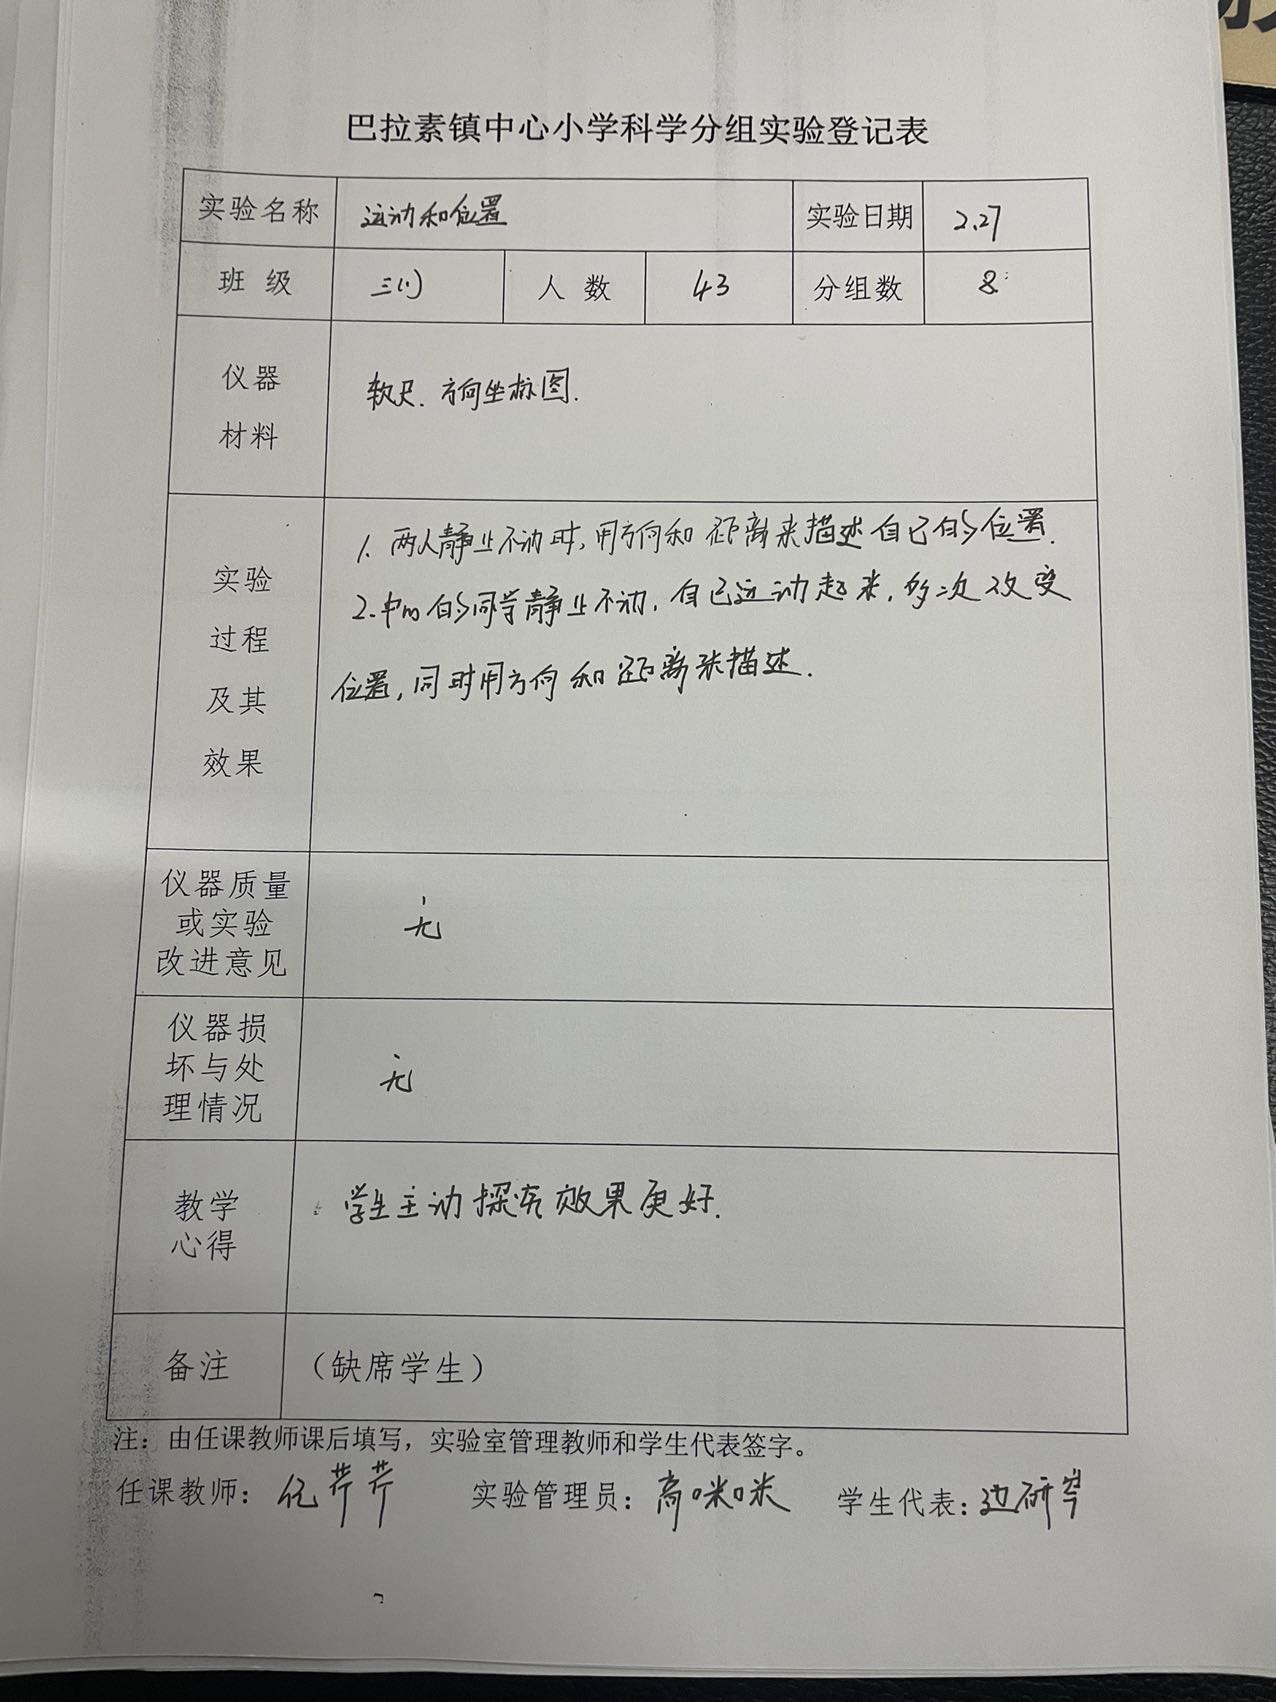 巴拉素镇中心小学科学分组实验登记表
实验名称 运动和位置 实验日期 2.27
班 级 三(1) 人 数 43 分组数 8
仪器
材料
软尺. 方向坐标图.
实验
过程
及其
效果
1. 两人静止不动时,用方向和距离来描述自己的位置.
2.中心的同学静止不动,自己运动起来,多次改变
位置,同时用方向和距离来描述.
仪器质量
或实验
改进意见
无
仪器损
坏与处
理情况
无
教学
心得
学生主动探究效果更好.
备注 (缺席学生)
注：由任课教师课后填写，实验室管理教师和学生代表签字。
任课教师： 芹芹 实验管理员：高咪咪 学生代表：边研